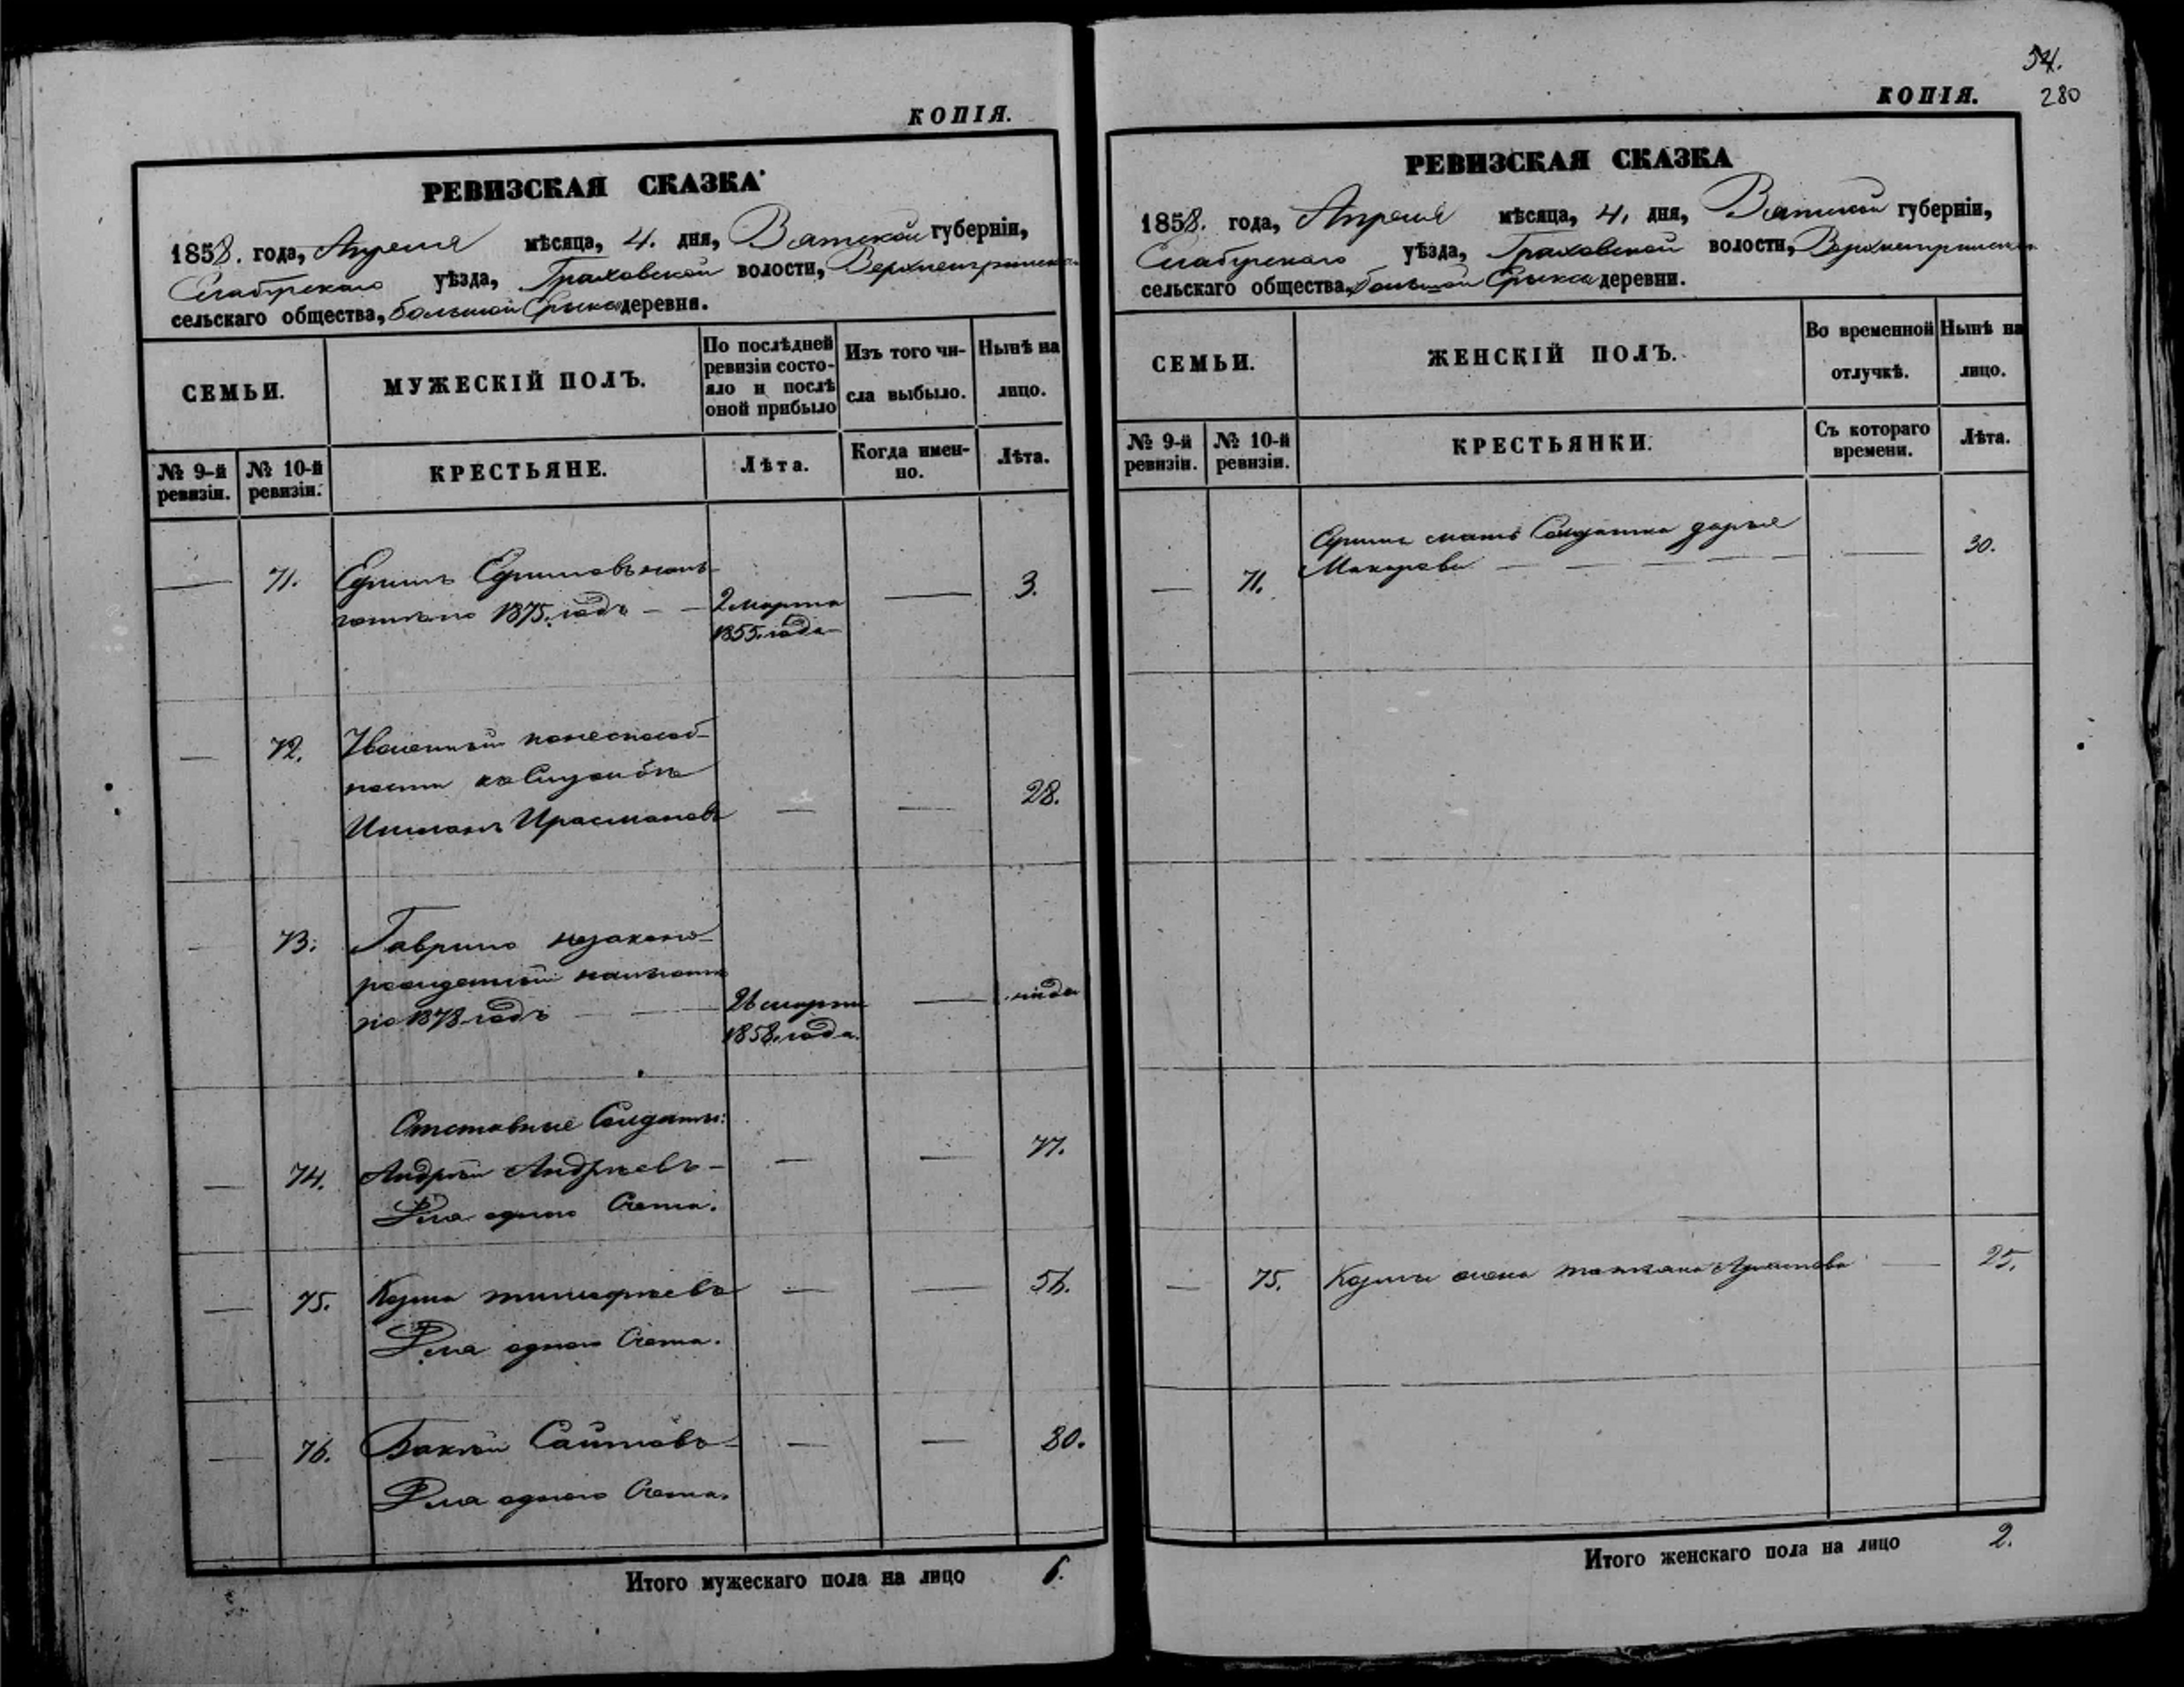 КОПІЯ.
РЕВИЗСКАЯ СКАЗКА
1858. года, Апреля мѣсяца, 4. дня, Вятской губерніи,
Елабугскаго уѣзда, Граховской волости,
сельскаго общества, большой Ерыксы деревни.
СЕМЬИ.
МУЖЕСКІЙ ПОЛЪ.
По послѣдней ревизіи состояло и послѣ оной прибыло
Изъ того числа выбыло.
Нынѣ на лицо.
№ 9-й ревизіи.
№ 10-й ревизіи.
КРЕСТЬЯНЕ.
Лѣта.
Когда именно.
Лѣта.
71.
1875. годъ
2 марта
1855. года
3.
72.
Уволенный по неспособ-
ности къ Службѣ
28.
73.
Гаврило незаконо-
рожденный
по 1878 годъ
26 марта
1858. года.
74.
Отставные Солдаты:
Андрей Андреевъ
Для одного Счета.
77.
75.
Козма Тимофѣевъ
Для одного Счета.
56.
76.
Саитовъ
Для одного Счета.
80.
Итого мужескаго пола на лицо 6.
54.
280
КОПІЯ.
РЕВИЗСКАЯ СКАЗКА
1858. года, Апреля мѣсяца, 4. дня, Вятской губерніи,
Елабугскаго уѣзда, Граховской волости,
сельскаго общества, большой Ерыксы деревни.
СЕМЬИ.
ЖЕНСКІЙ ПОЛЪ.
Во временной отлучкѣ.
Нынѣ на лицо.
№ 9-й ревизіи.
№ 10-й ревизіи.
КРЕСТЬЯНКИ.
Съ котораго времени.
Лѣта.
71.
мать Солдатка дарья
Макарова
30.
75.
Козмы жена татьяна
25.
Итого женскаго пола на лицо 2.